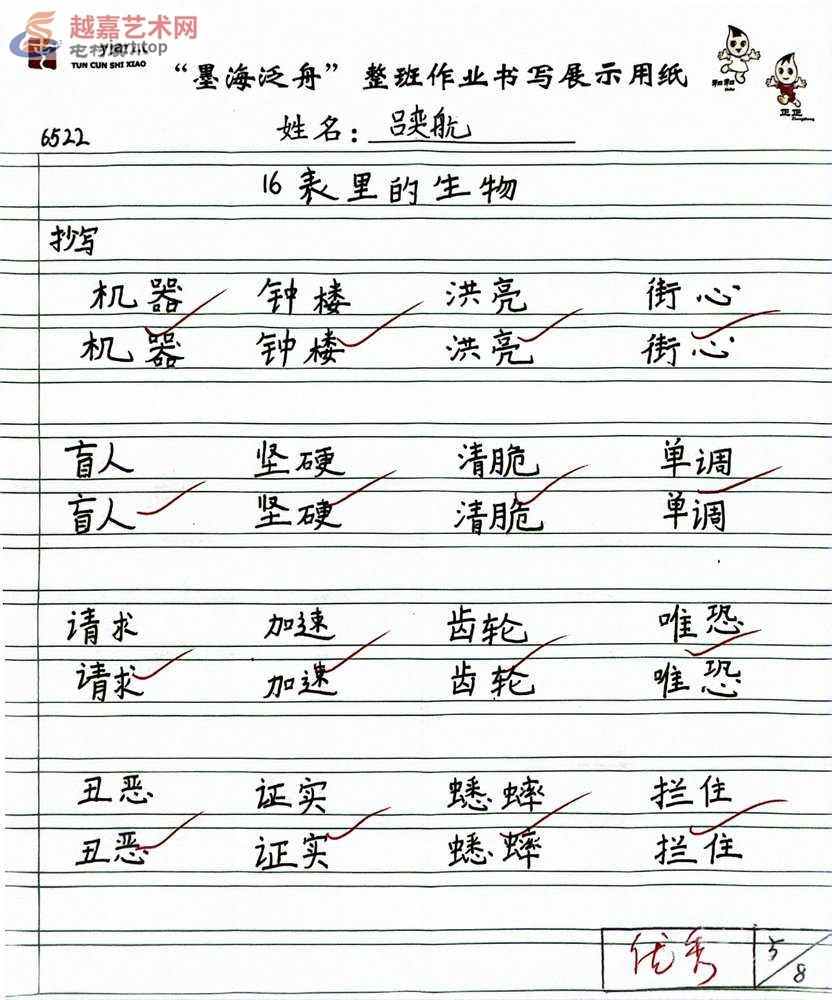 越嘉艺术网
yjart.top
TUN CUN SHI XIAO
“墨海泛舟”整班作业书写展示用纸
和和
正正
6522
姓名：吕奕航
16 表里的生物
抄写
机器 钟楼 洪亮 街心
机器 钟楼 洪亮 街心
盲人 坚硬 清脆 单调
盲人 坚硬 清脆 单调
请求 加速 齿轮 唯恐
请求 加速 齿轮 唯恐
丑恶 证实 蟋蟀 拦住
丑恶 证实 蟋蟀 拦住
优秀 5/8